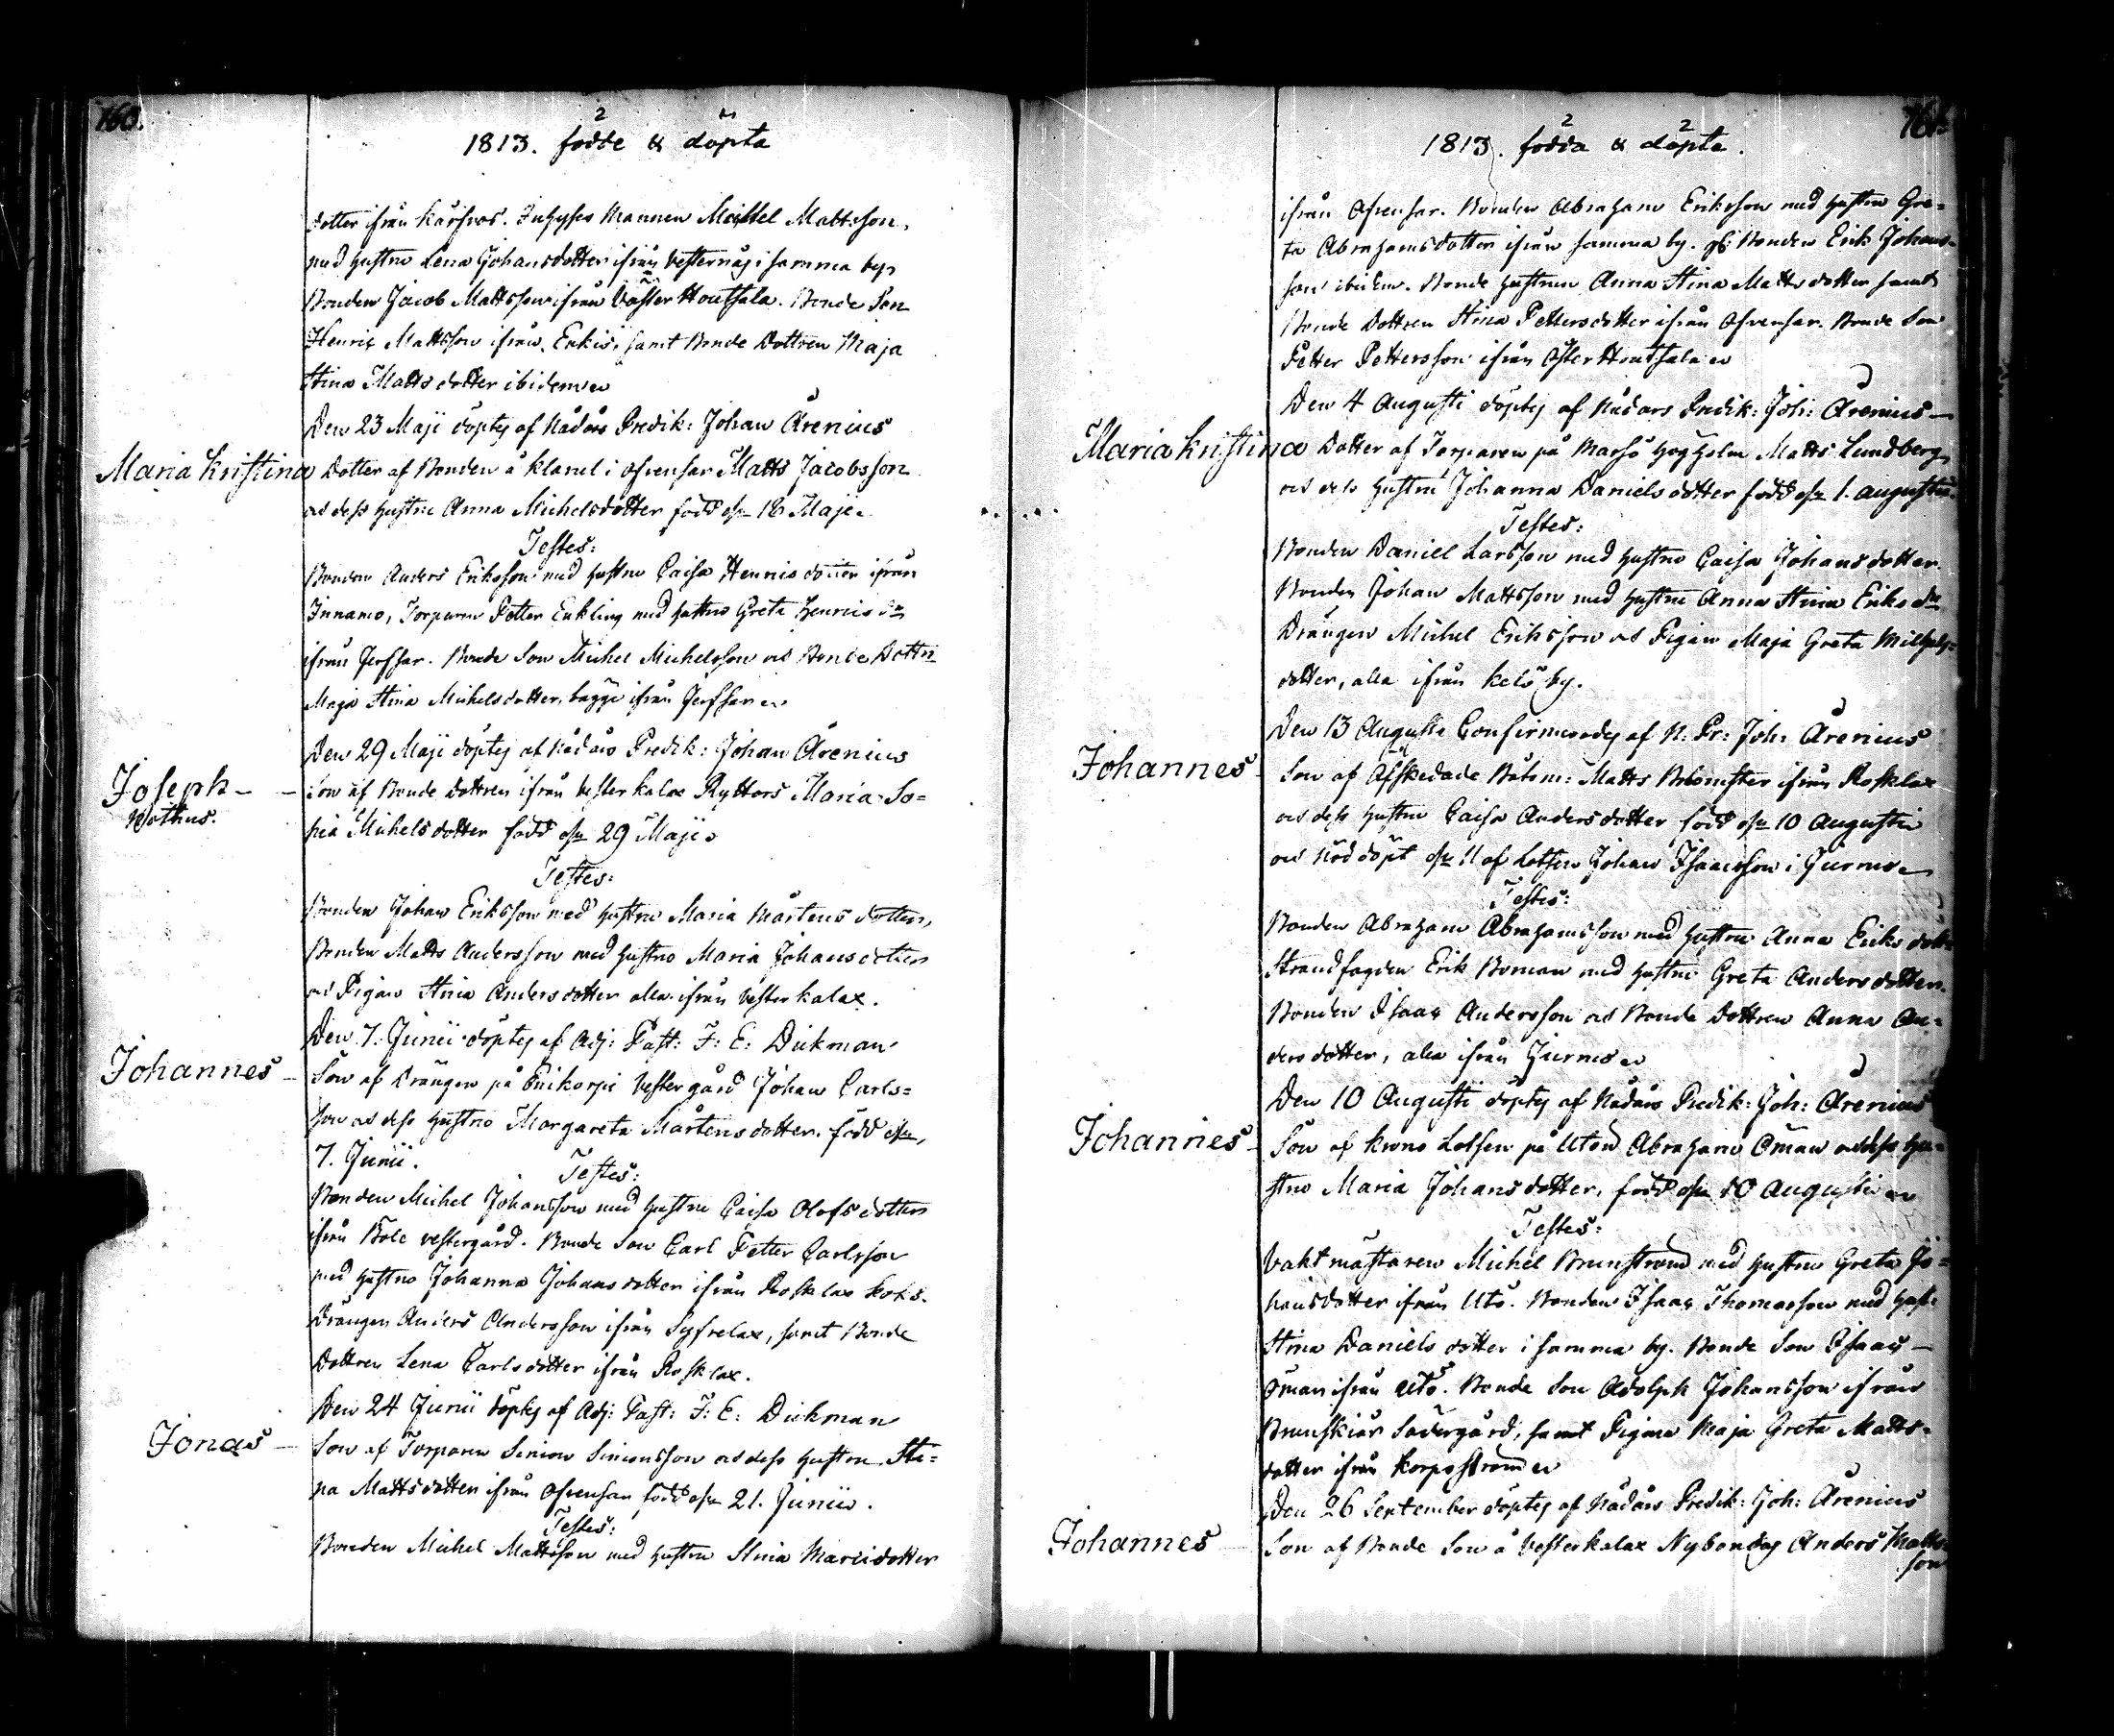 160.
1813. födde & döpta
dotter ifrån Kårsnäs. Inhyses Mannen Michel Mattsson,
med hustru Lena Johansdotter ifrån Vesternäs i samma by,
Bonden Jacob Mattsson ifrån Väster Houtsala. Bonde Son
Henric Mattsson ifrån Enkis, samt Bonde Dottren Maja
Stina Mattsdotter ibidem
Den 23 Maji döptes af Nådårs Predik: Johan Arenius
Maria Kristina Dotter af Bonden å Klarvel i Ofvensar Matts Jacobsson
och dess hustru Anna Michelsdotter född d. 18 Maji.
Testes:
Bonden Anders Eriksson med hustru Caisa Henrics dotter ifrån
Innamo, Torparen Petter Enkling med hustru Greta Henrics dr
ifrån Jerfsar. Bonde Son Michel Michelsson och Bonde Dottren
Maja Stina Michelsdotter, bägge ifrån Jerfsar
Den 29 Maji döptes af Nådårs Predik: Johan Arenius
Joseph Son af Bonde dottren ifrån Vesterkalax Ryttars Maria So=
Nothus. phia Michelsdotter född d. 29 Maji
Testes:
Bonden Johan Eriksson med hustru Maria Mårtens dotter,
Bonden Matts Andersson med hustru Maria Johansdotter
och Pigan Stina Andersdotter alla ifrån Vesterkalax.
Den 7. Junii döptes af Adj: Past: F: E: Dickman
Johannes Son af Drängen på Finikorpi Vestergård Johan Carls=
son och dess hustru Margareta Mårtens dotter. född d.
7. Junii.
Testes:
Bonden Michel Johansson med hustru Caisa Olofs dotter
ifrån Bole vestergård. Bonde Son Carl Petter Carlsson
med hustru Johanna Johans dotter ifrån Rosklax Koks.
Drängen Anders Andersson ifrån Syfrelax, samt Bonde
Dottren Lena Carlsdotter ifrån Rosklax.
Den 24 Junii döptes af Adj: Past: F: E: Dickman
Jonas Son af Torparen Simon Simonsson och dess hustru Sti=
na Mattsdotter ifrån Ofvensar född d. 21. Junii.
Testes:
Bonden Michel Mattsson med hustru Stina Marcidotter
161.
1813. födda & döpta.
ifrån Ofvensar. Bonden Abraham Eriksson med hustru Gre=
ta Abrahamsdotter ifrån samma by. gl: Bonden Erik Johans=
son ibidem. Bonde hustrun Anna Stina Matts dotter samt
Bonde Dottren Stina Pettersdotter ifrån Ofvensar. Bonde Son
Petter Pettersson ifrån Öster Houtsala
Den 4 Augusti döptes af Nådårs Predik: Joh: Arenius
Maria Kristina Dotter af Torparen på Marsö Högholm Matts Lundberg
och dess hustru Johanna Daniels dotter född d. 1. Augusti.
Testes:
Bonden Daniel Larsson med hustru Caisa Johansdotter.
Bonden Johan Mattsson med hustru Anna Stina Eriks dr
Drängen Michel Eriksson och Pigan Maja Greta Milhels=
dotter, alla ifrån Kelö by.
Den 13 Augusti Confirmerades af N: Pr: Joh: Arenius
Johannes Son af Afskedade Båtsm: Matts Blomster ifrån Rosklax
och dess hustru Caisa Anders dotter född d. 10 Augusti
och nöddöpt d. 11 af Lotsen Johan Isaacsson i Jurmo
Testes:
Bonden Abraham Abrahamsson med hustru Anna Eriks dotter
Strandfogden Erik Boman med hustru Greta Andersdotter.
Bonden Isaac Andersson och Bonde Dottren Anna An=
dersdotter, alla ifrån Jurmo
Den 10 Augusti döptes af Nådårs Predik: Joh: Arenius
Johannes Son af Krono Lotsen på Utön Abraham Öman och dess hu=
stru Maria Johansdotter, född d. 10 Augusti
Testes:
Vaktmästaren Michel Brunström med hustru Greta Jo=
hansdotter ifrån Utö. Bonden Isaac Thomasson med hust:
Stina Daniels dotter i samma by. Bonde Son Isaac
Öman ifrån Utö. Bonde Son Adolph Johansson ifrån
Brunskiär Södergård, samt Pigan Maja Greta Matts=
dotter ifrån Korpoström
Den 26 September döptes af Nådårs Predik: Joh: Arenius
Johannes Son af Bonde Son å Vesterkalax Nybondas Anders Matts=
son